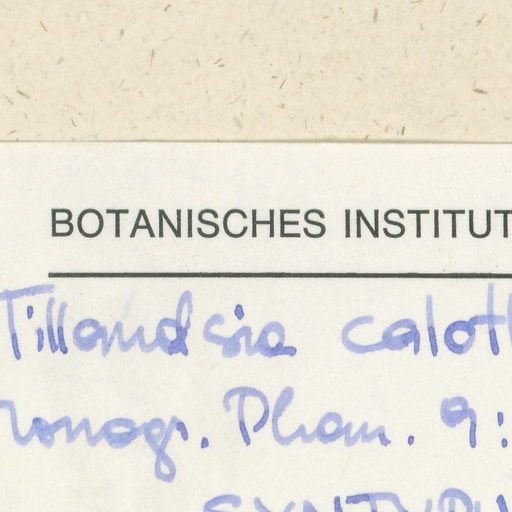 BOTANISCHES INSTITUT
Tillandsia calot
Monogr. Phan. 9: